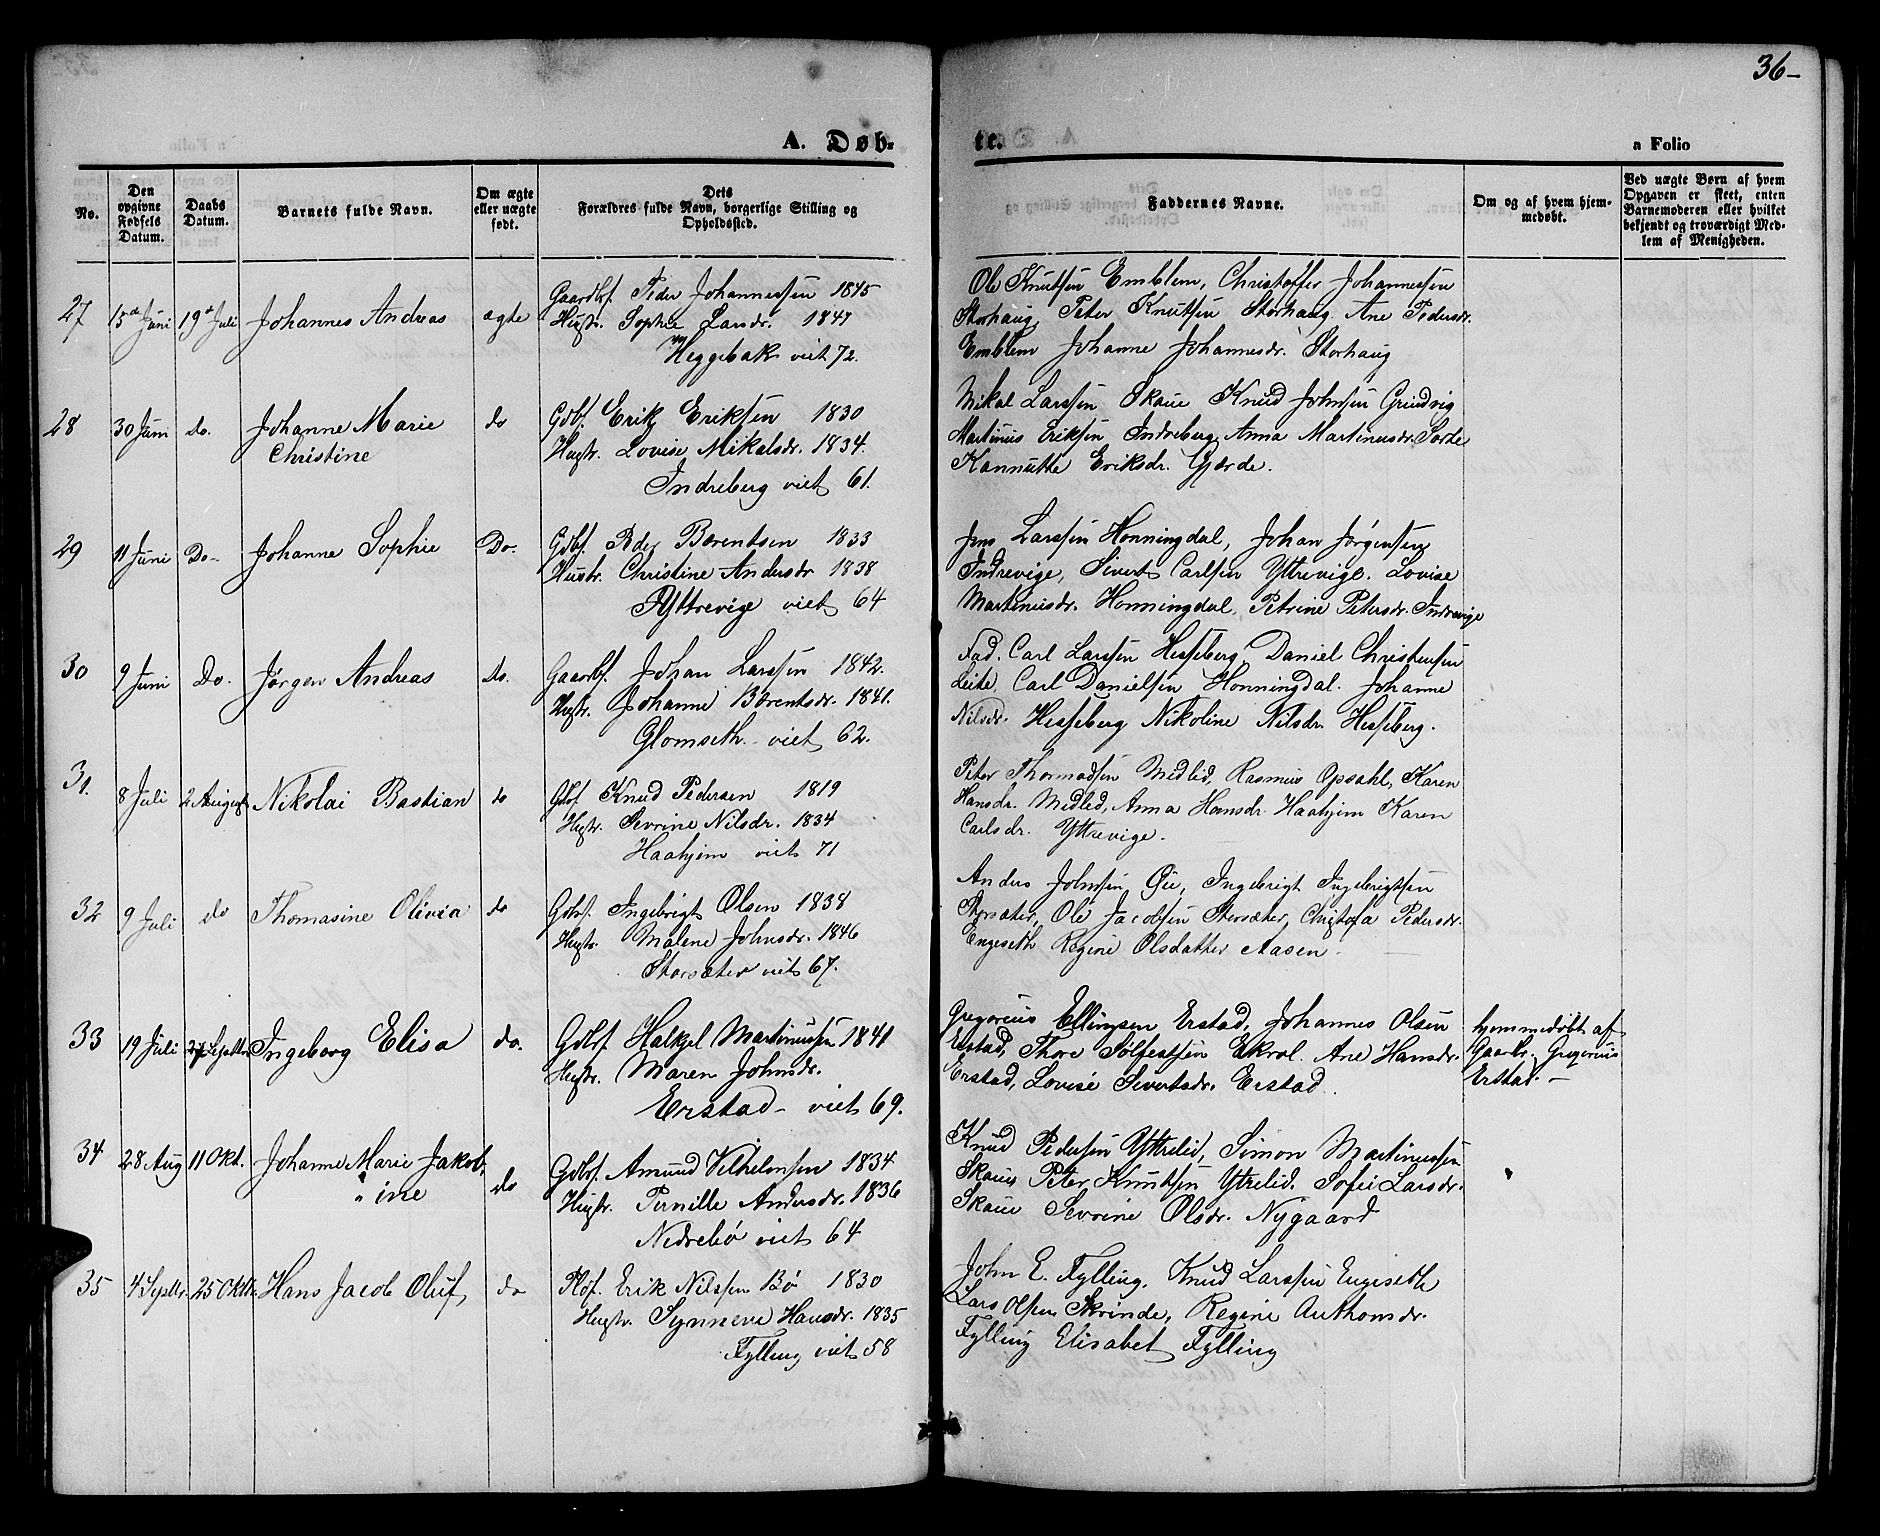 36-
A. Døbte.
a Folio
No.
Den opgivne Fødsels Datum.
Daabs Datum.
Barnets fulde Navn.
Om ægte eller uægte født.
Dets Forældres fulde Navn, borgerlige Stilling og Opholdssted.
Faddernes Navne.
Om og af hvem hjemmedøbt.
Ved uægte Børn af hvem Opgaven er skeet, enten Barnemoderen eller hvilket bekjendt og troværdigt Medlem af Menigheden.
27 15de Juni 19de Juli Johannes Andreas ægte
Gaardbr. Peder Johannessen 1845
Hustr. Sophie Larsdr. 1847
Heggebak viet 72.
Ole Knutsen Emblem, Christoffer Johannessen
Storhaug, Peter Knutsen Storhaug. Ane Pedersdr.
Emblem Johanne Johannesdr. Storhaug
28 30 Juni do. Johanne Marie do
Christine
Gdbr. Erik Eriksen 1830
Hustr. Lovise Mikalsdr. 1834.
Indreberg viet 61.
Mikal Larssen Skaue Knud Johnsen Grindvig
Martinus Eriksen Indreberg, Anna Martinusdr. Sorte
Kannutte Eriksdr. Gjærde.
29 11 Juni Do- Johanne Sophie Do-
Gdbr. Peder Berentsen 1833
Hustr. Christine Andersdr 1838
Yttrevige viet 64
Jens Larssen Honningdal, Johan Jørgensen
Indrevige, Sivert Carlsen Yttrevige. Lovise
Martinusdr. Honningdal, Petrine Petersdr. Indrevige
30 9 Juni Do. Jørgen Andreas Do.
Gaardbr. Johan Larssen 1842.
Hustr. Johanne Berentsdr. 1841.
Glomseth - viet 62.
Fad. Carl Larssen Hesseberg, Daniel Christensen
Leite, Carl Danielsen Honningdal. Johanne
Nilsdr. Hesseberg Nikoline Nilsdr. Hesseberg.
31. 8 Juli 2 August Nikolai Bastian do
Gdbr Knud Pedersen 1819
Hustr. Sevrine Nilsdr. 1834
Haahjem viet 71
Peter Thormodsen Medlid, Rasmus Opsahl, Karen
Hansdr. Medlid, Anna Hansdr. Haahjem Karen
Carlsdr. Yttrevige.
32 9 Juli do Thomasine Olivia do
Gdbr. Ingebrigt Olsen 1838
Hustr. Malene Johnsdr. 1846
Storsæter viet 67.
Anders Johnsen Øie, Ingebrigt Ingebrigtsen
Storsæter, Ole Jacobsen Storsæter, Christofa Pedersdr.
Engeseth Regine Olsdatter Aasen -
33 19 Juli 27 Septbr Ingeborg Elisa do.
Gdbr. Halkjel Martinussen 1841
Hustr. Maren Johnsdr.
Erstad - viet 69.
Gregorius Ellingsen Erstad, Johannes Olsen
Erstad, Thore Sølfestsen Ekrol. Ane Hansdr.
Erstad, Lovise Sivertsdr. Erstad.
hjemmedøbt af
Gaarbr. Gregorius
Erstad. -
34 28 Aug 11 Okt. Johanne Marie Jakob-
ine do
Gdbr. Amund Vilhelmsen 1834
Hustr. Pernille Andersdr. 1836
Nedrebø viet 64
Knud Pedersen Yttrelid, Simon Martinussen
Skaue Peter Knutsen Ytrelid. Sofie Larsdr.
Skaue Sevrine Olsdr. Nygaard
35 4 Septbr. 25 Oktbr. Hans Jacob Oluf, do
Pldf. Erik Nilssen Bø 1830
Hustr. Synneve Hansdr. 1835
Fylling viet 58
John E. Fylling. Knud Larssen Engeseth
Lars Olsen Skrinde, Regine Anthonsdr.
Fylling Elisabet Fylling